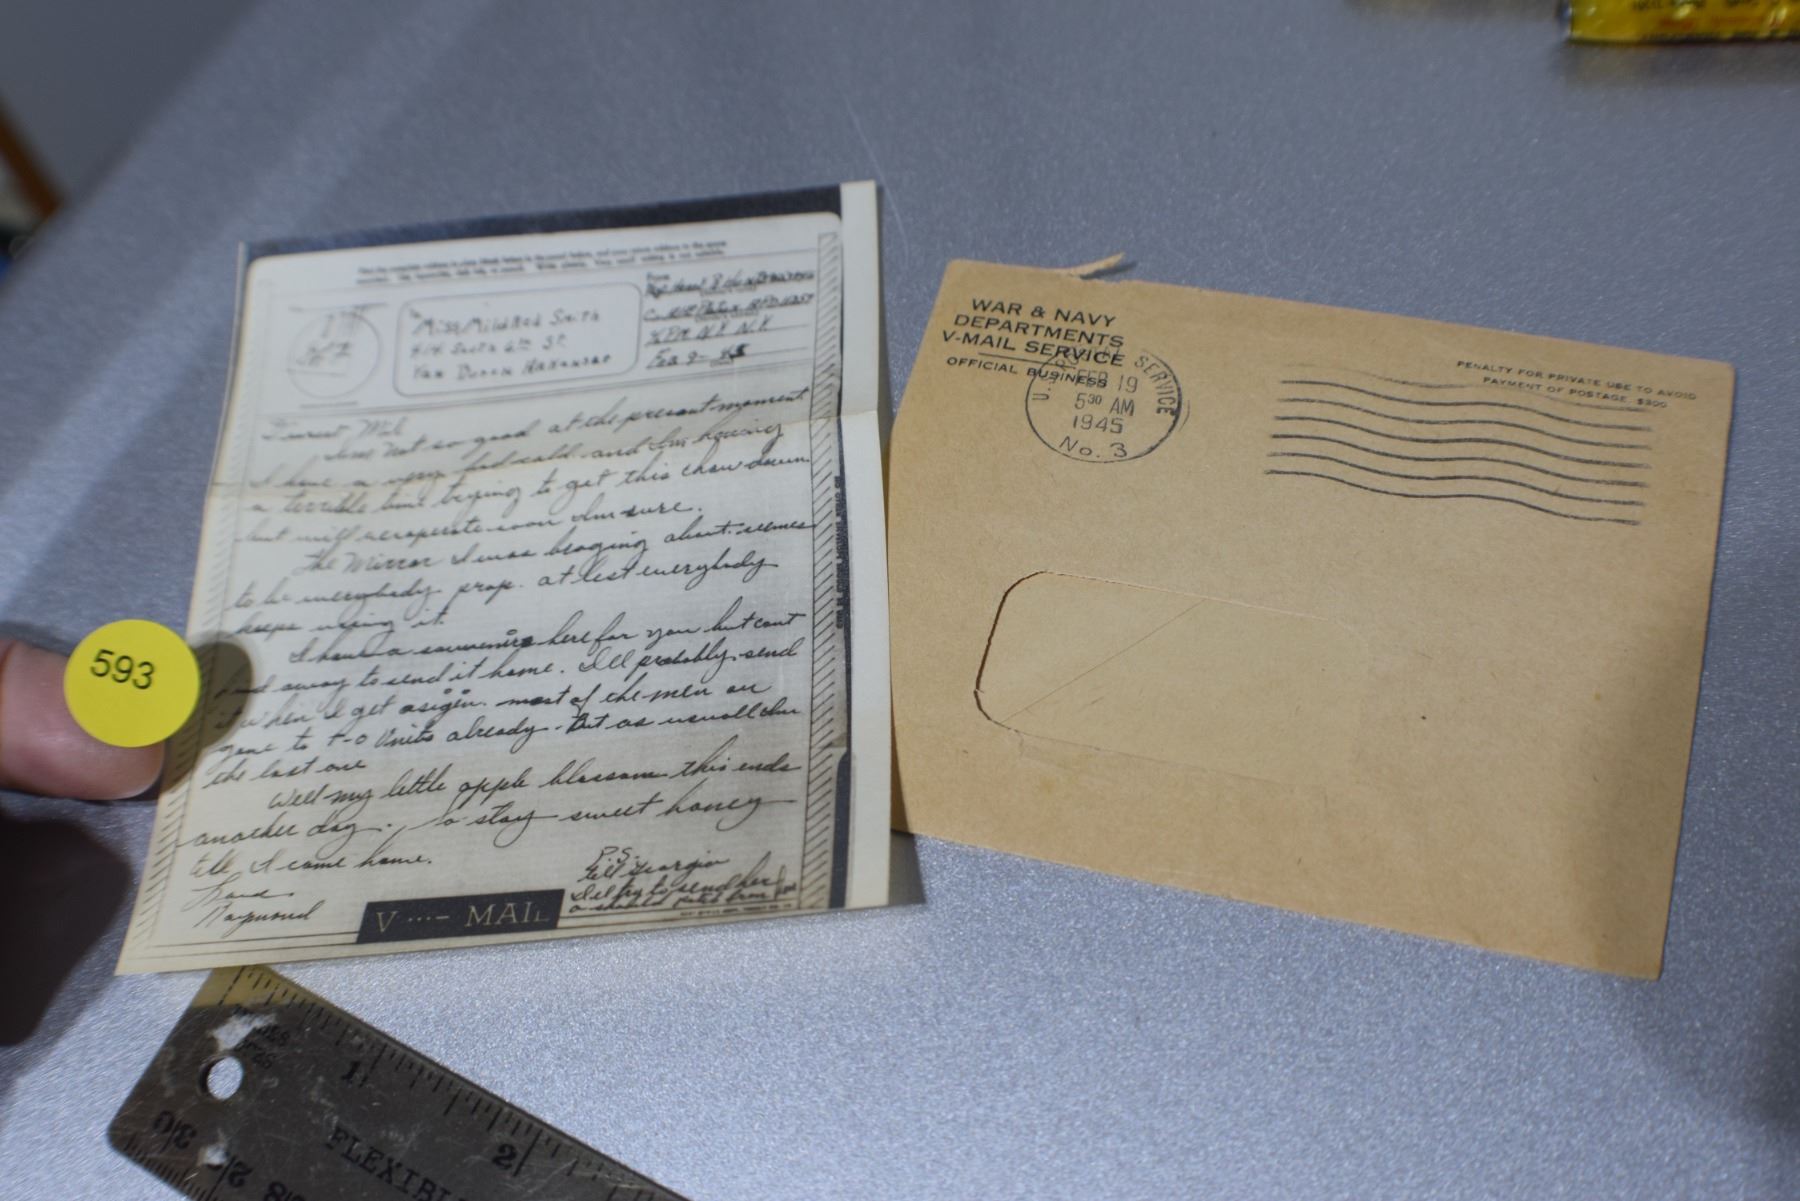 To
Miss Mildred Smith
South 6th St.
Van Buren Arkansas
From
N.Y. N.Y.
Feb 9- 45
Dearest Mil
Im not so good at the present moment.
I have a very bad cold and Im having
a terrible time trying to get this chow down
but will recuperate soon Im sure.
The Mirror I was braging about seemes
to be everybody prop. at lest everybody
keeps using it.
I have a souvenirs here for you but cant
away to send it home. Ill probably send
it when I get asigin. most of the men are
gone to T-O Units already. But as usuall Im
the last one
Well my little apple blossom this ends
another day. So stay sweet honey
till I come home.
Raymond
P.S.
Tell Georgia
Ill try to send her
a
V ···- MAIL
593
WAR & NAVY
DEPARTMENTS
V-MAIL SERVICE
OFFICIAL BUSINESS
U.S. POSTAL SERVICE
FEB 19
5 30 AM
1945
No. 3
PENALTY FOR PRIVATE USE TO AVOID
PAYMENT OF POSTAGE, $300
1
2
FLEXIBL